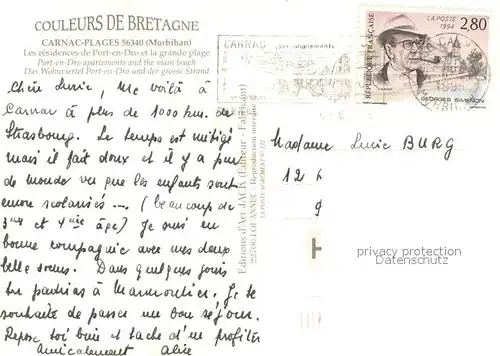 COULEURS DE BRETAGNE
CARNAC-PLAGES 56340 (Morbihan)
Les résidences de Port-en-Dro et la grande plage
Port-en-Dro apartments and the main beach
Das Wohnviertel Port-en-Dro und der grosse Strand
Chère Lucie, me voilà à
Carnac à plus de 1000 km. de
Strasbourg. Le temps est mitigé
mais il fait doux et il y a peu
de monde vu que les enfants sont
encore scolarisés ... (beaucoup de
3me et 4me âge) Je suis en
bonne compagnie avec mes deux
belle sœurs. Dans quelques jours
tu partiras à Marmoutier. Je te
souhaite de passer un bon séjour.
Repose toi bien et tache d'en profiter
Amicalement Alice
Editions d'Art JACK (Editeur - Fabricant)
Reproduction interdite
CARNAC
LA POSTE
1994
2,80
REPUBLIQUE FRANÇAISE
GEORGES SIMENON
Madame Lucie BURG
12
9
privacy protection
Datenschutz